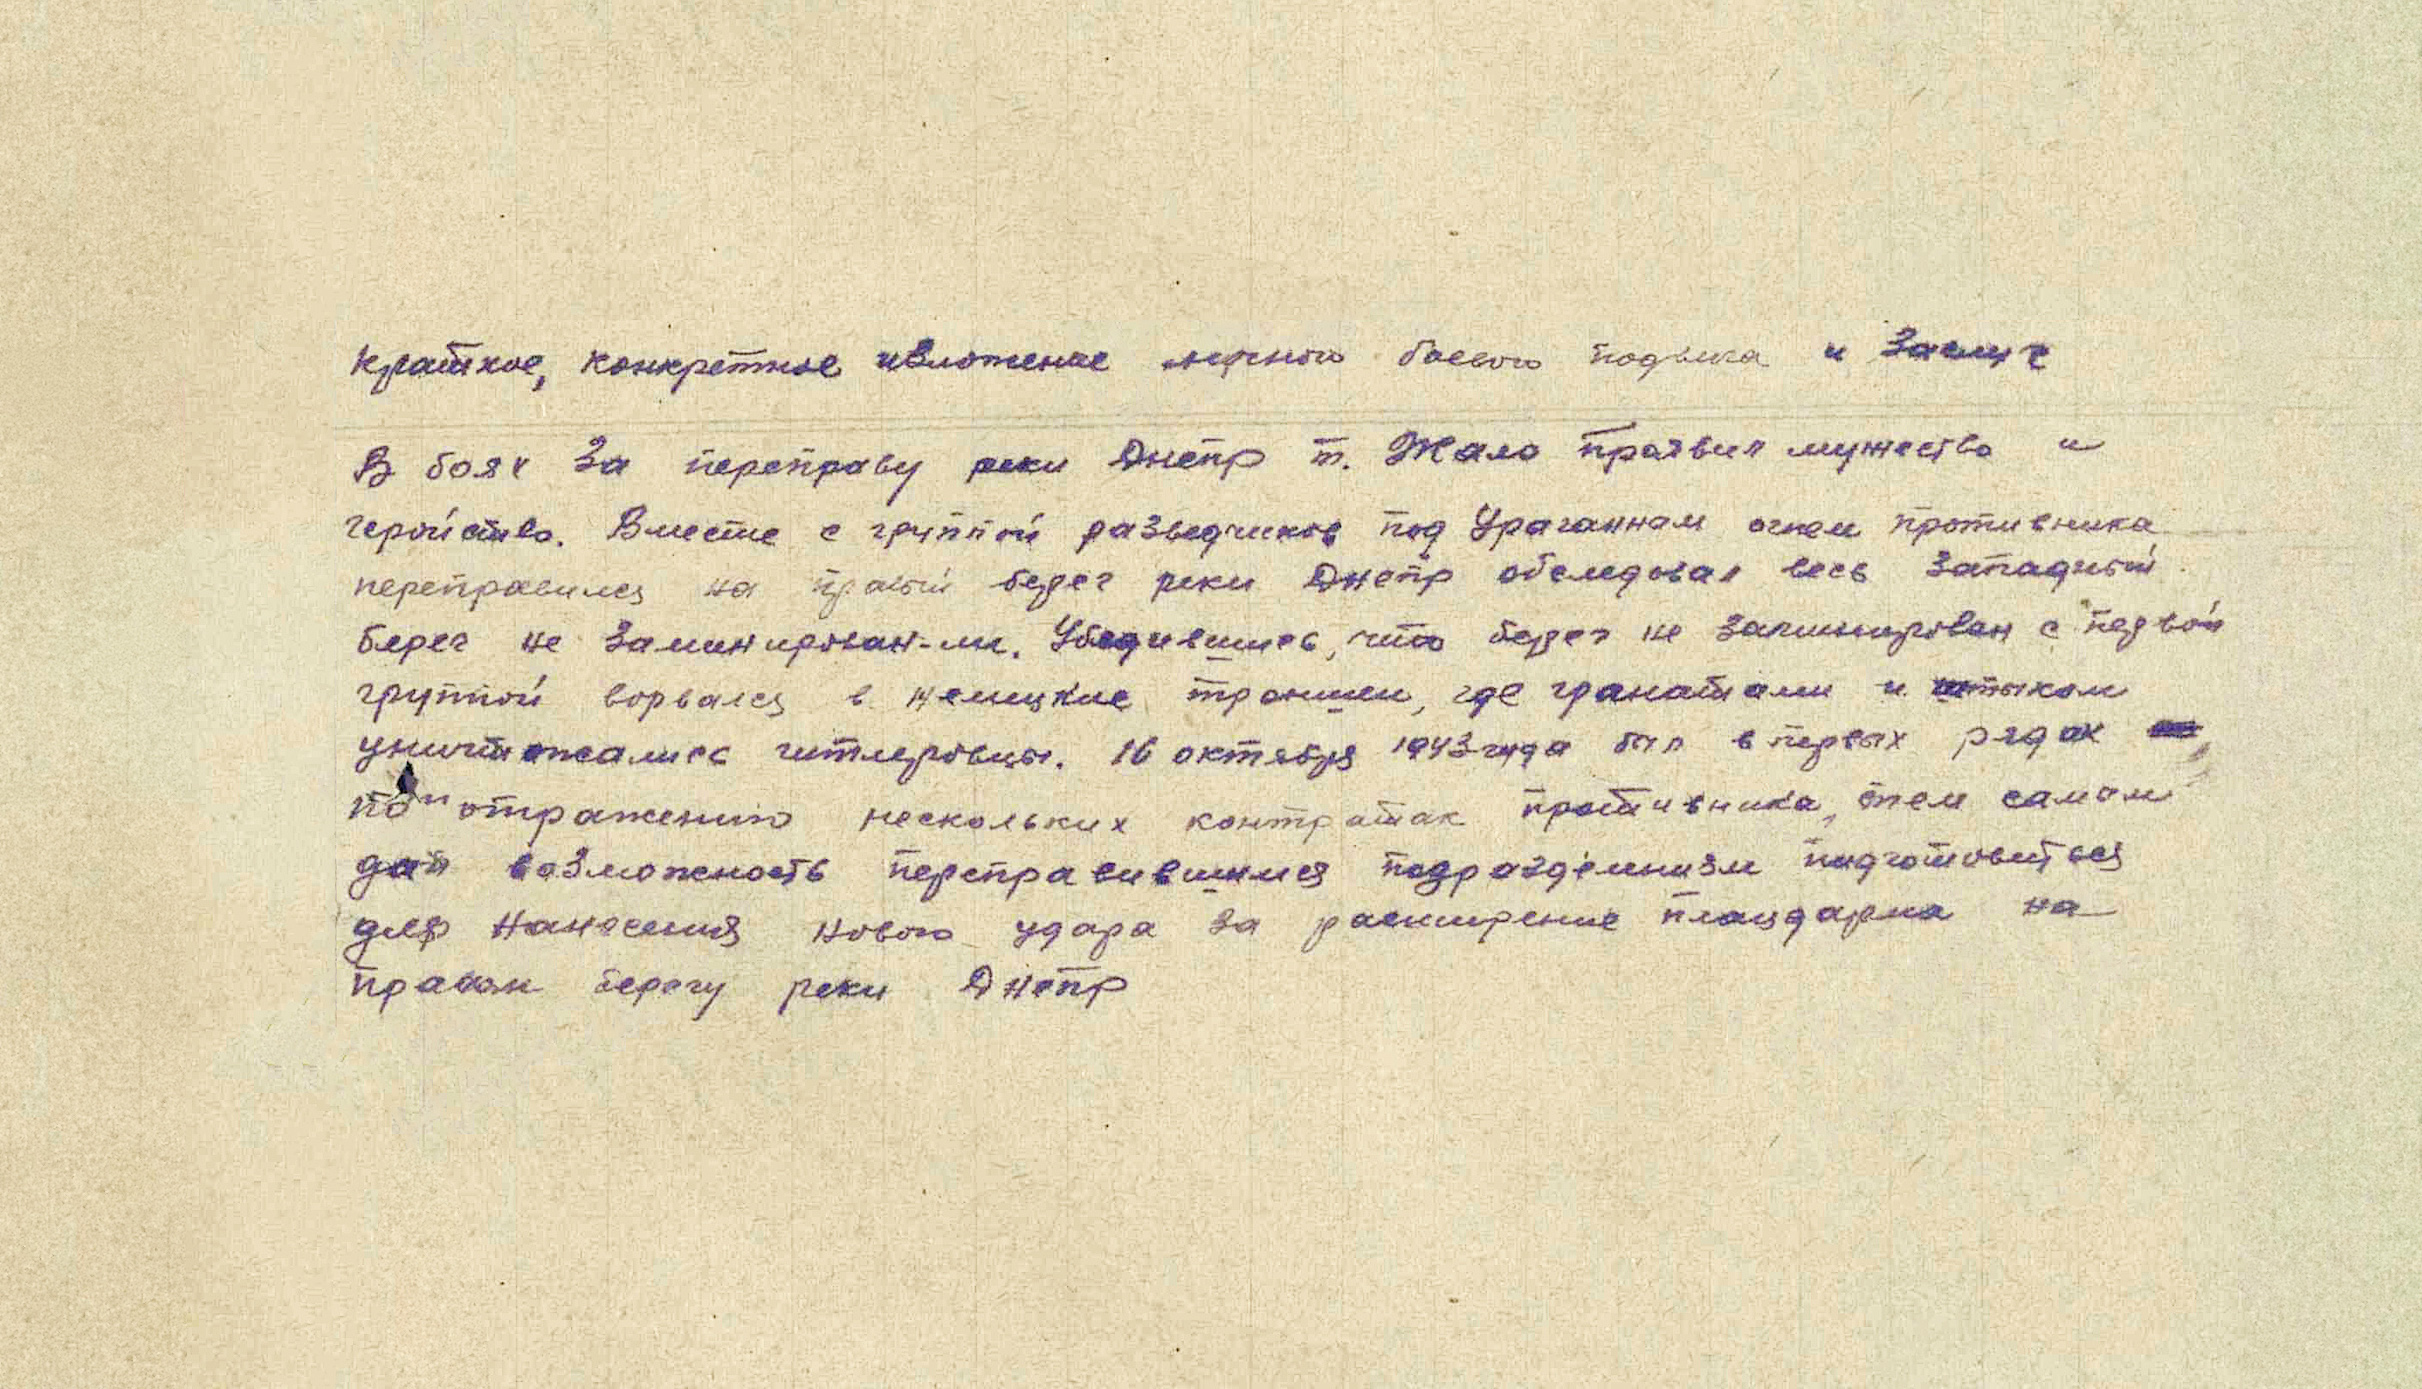 Краткое, конкретное изложение личного боевого подвига и заслуг
В боях за переправу реки Днепр т. Жало проявил мужество и
геройство. Вместе с группой разведчиков под ураганном огнем противника
переправился на правый берег реки Днепр обследовал весь западный
берег не заминирован-ли. Убедившись, что берег не заминирован с первой
группой ворвался в немецкие траншеи, где гранатами и штыком
уничтожались гитлеровцы. 16 октября 1943 года был в первых рядах
по отражению нескольких контратак противника, тем самом
дал возможность переправившимся подразделниям подготовиться
для нанесения нового удара за расширение плацдарма на
правом берегу реки Днепр